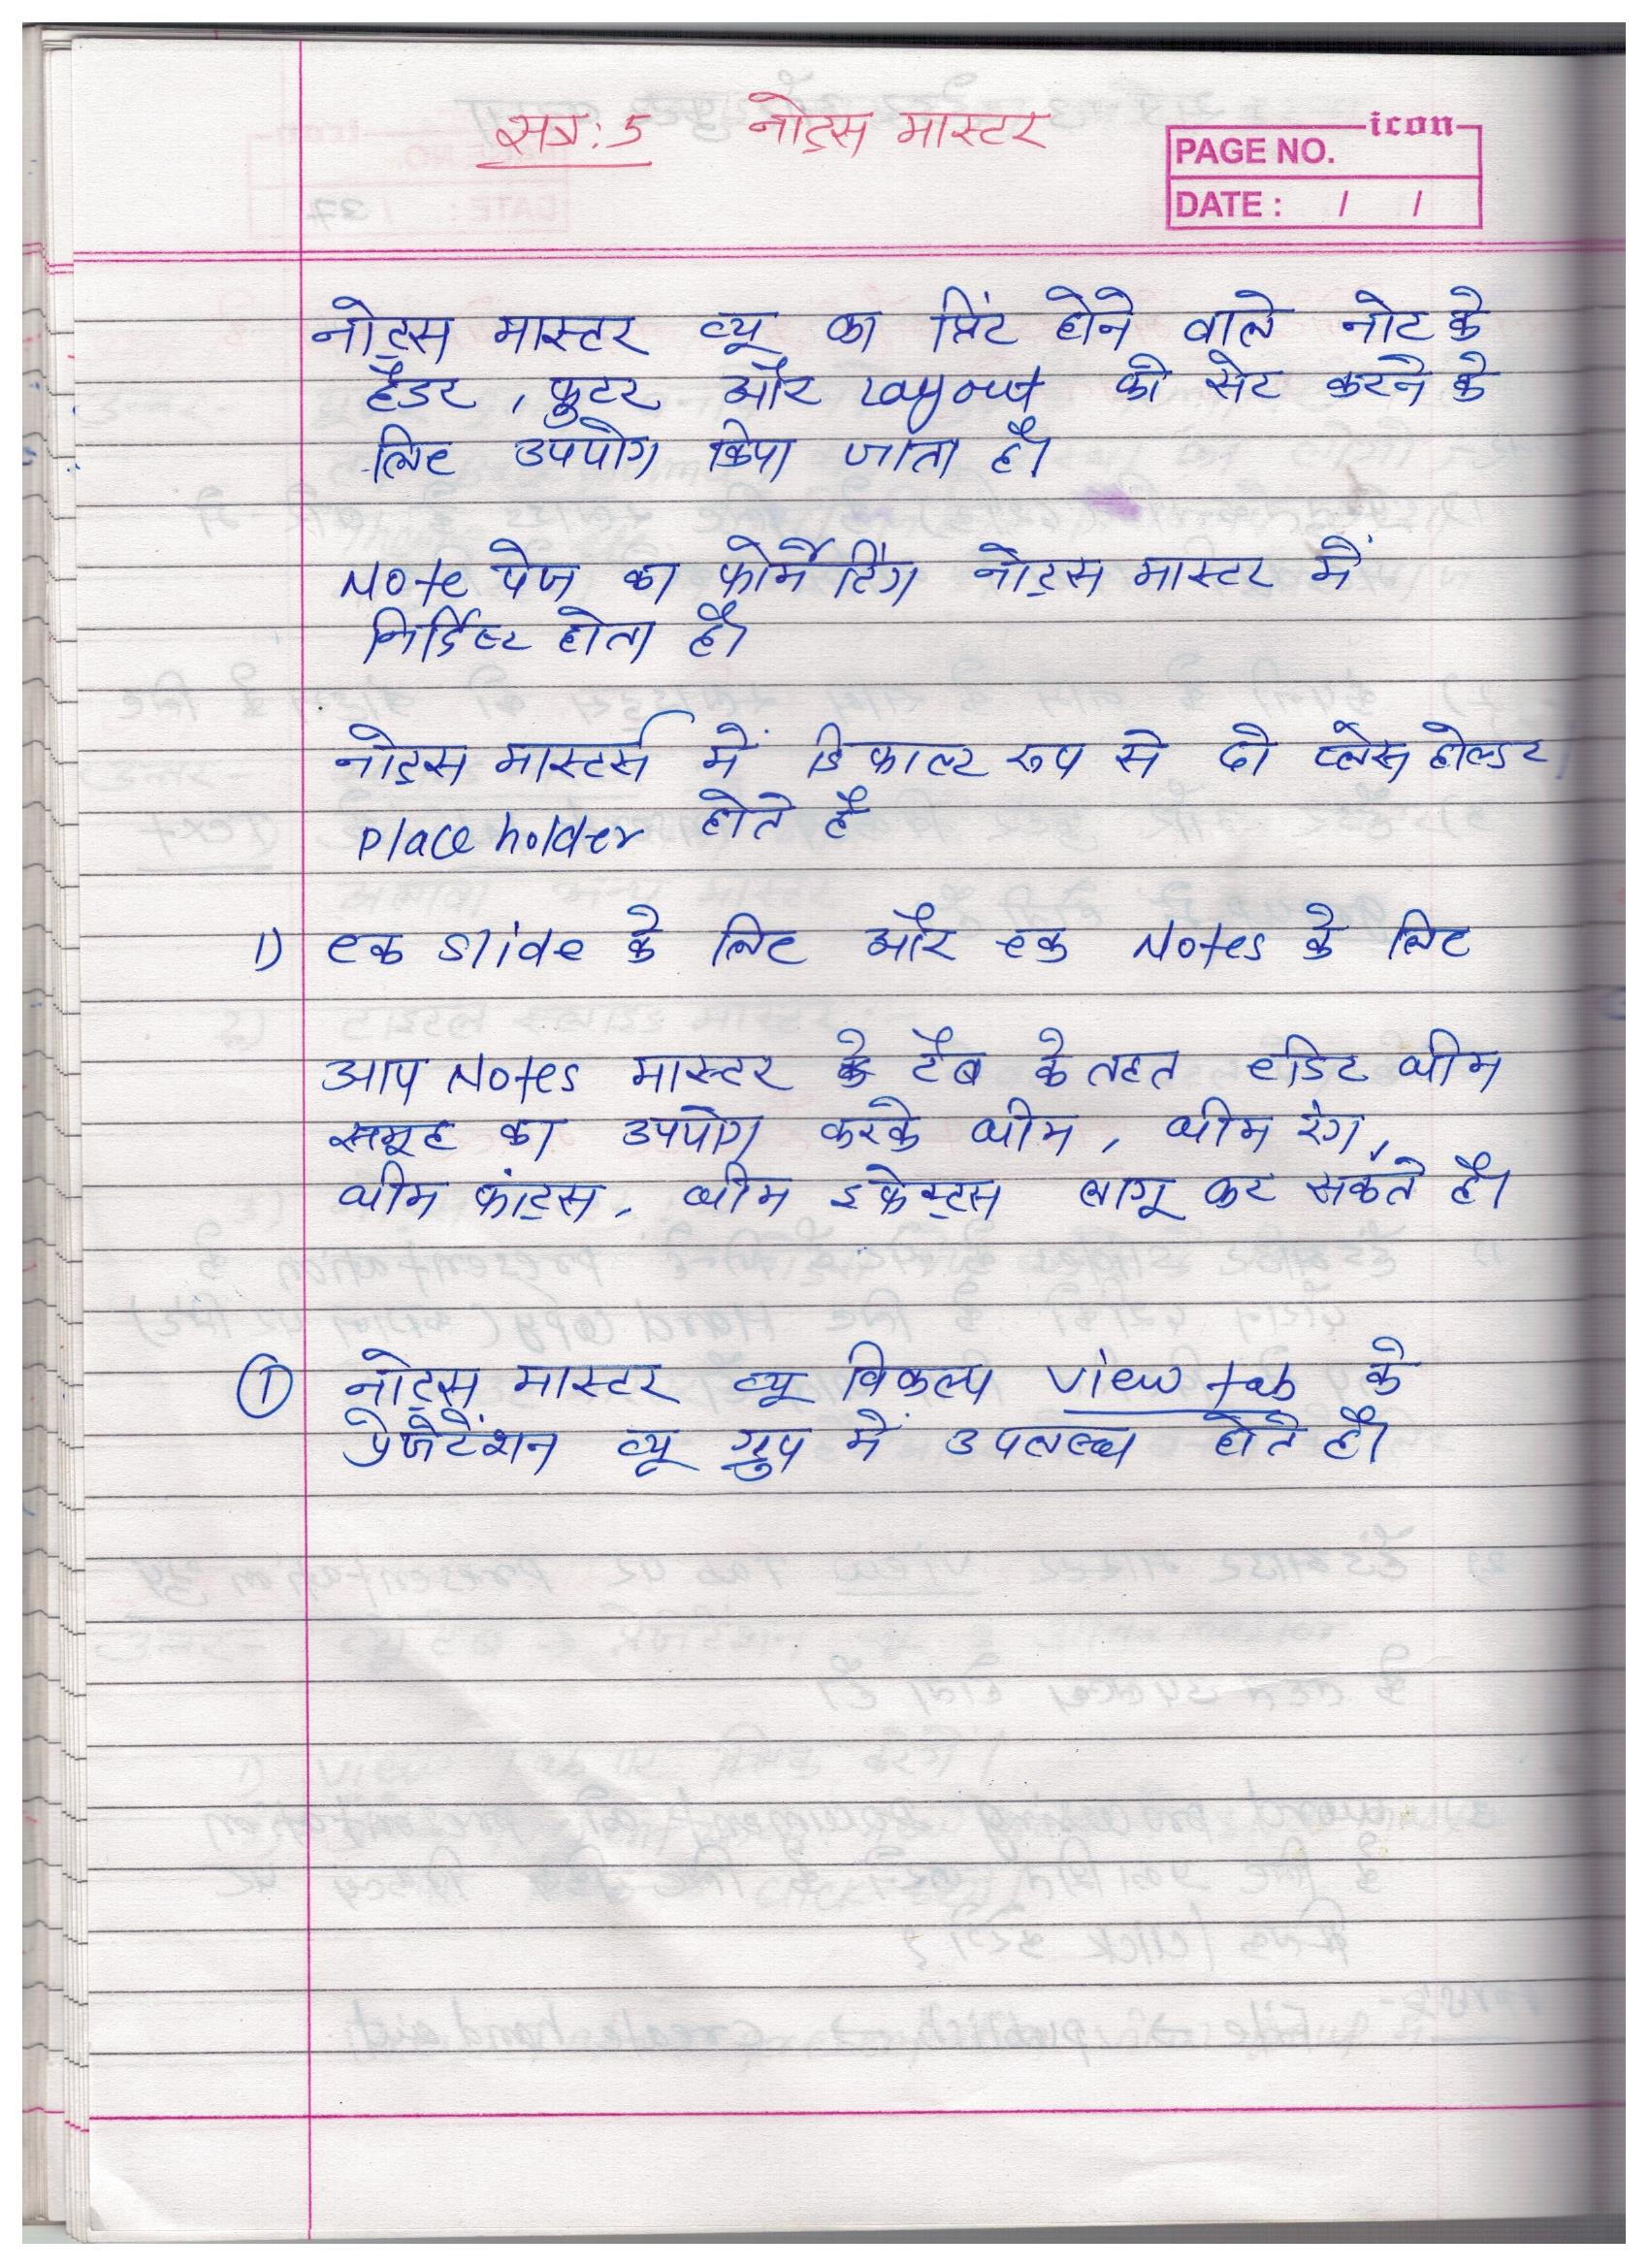 सत्र: 5 नोट्स मास्टर
icon
PAGE NO.
DATE : / /
नोट्स मास्टर व्यू का प्रिंट होने वाले नोट के
हैडर, फुटर और Layout को सेट करने के
लिए उपयोग किया जाता है।
Note पेज का फोर्मेटिंग नोट्स मास्टर में
निर्दिष्ट होता है।
नोट्स मास्टर्स में डिफाल्ट रूप से दो प्लेस होल्डर
place holder होते है
1) एक slide के लिए और एक Notes के लिए
आप Notes मास्टर के टैब के तहत एडिट थीम
समूह का उपयोग करके थीम, थीम रंग,
थीम फांट्स, थीम इफेक्ट्स लागू कर सकते है।
① नोट्स मास्टर व्यू विकल्प view tab के
प्रेजेंटेंशन व्यू ग्रुप में उपलब्ध होते है।